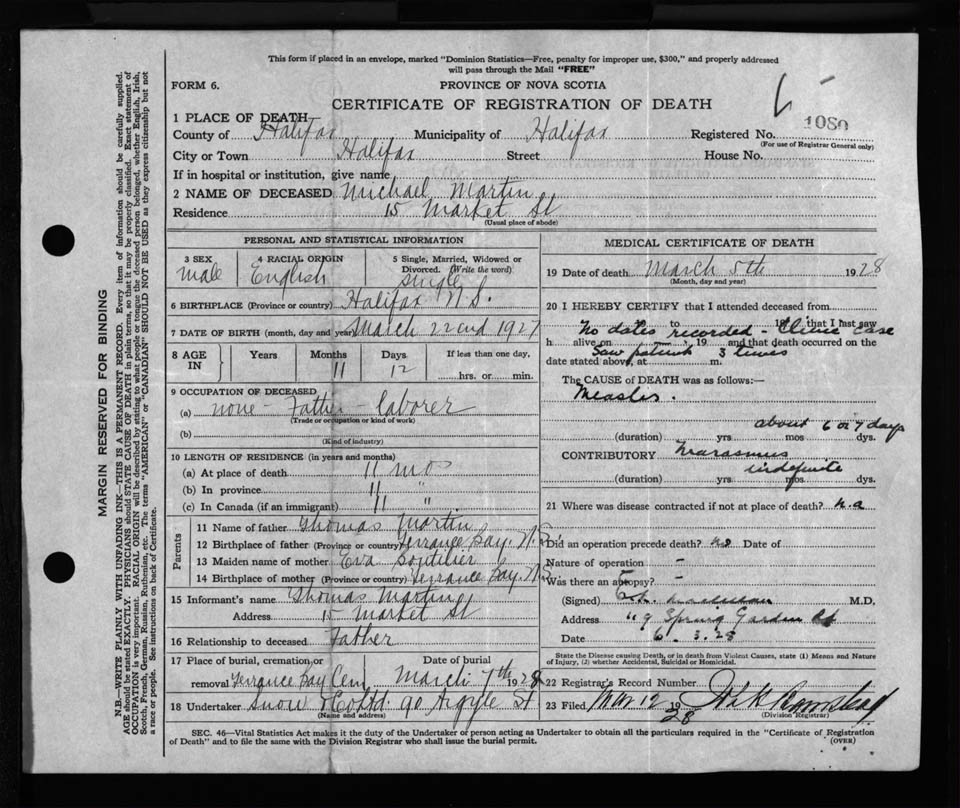 This form if placed in an envelope, marked "Dominion Statistics—Free, penalty for improper use, $300," and properly addressed
will pass through the Mail "FREE"
FORM 6.
PROVINCE OF NOVA SCOTIA
CERTIFICATE OF REGISTRATION OF DEATH
1080
1 PLACE OF DEATH
County of Halifax Municipality of Halifax Registered No.
(For use of Registrar General only)
City or Town Halifax Street House No.
If in hospital or institution, give name
2 NAME OF DECEASED Michael Martin
Residence 15 Market St
(Usual place of abode)
PERSONAL AND STATISTICAL INFORMATION
3 SEX 4 RACIAL ORIGIN 5 Single, Married, Widowed or Divorced. (Write the word)
male English Single
6 BIRTHPLACE (Province or country) Halifax N.S.
7 DATE OF BIRTH (month, day and year) March 22nd 1927
8 AGE IN Years Months Days If less than one day,
11 12 hrs. or min.
9 OCCUPATION OF DECEASED
(a) none - Father - laborer
(Trade or occupation or kind of work)
(b)
(Kind of industry)
10 LENGTH OF RESIDENCE (in years and months)
(a) At place of death 11 mos
(b) In province 11 "
(c) In Canada (if an immigrant) 11 "
Parents
11 Name of father Thomas Martin
12 Birthplace of father (Province or country) Terrance Bay. N.S.
13 Maiden name of mother Eva Boutilier
14 Birthplace of mother (Province or country) Terrance Bay. N.S
15 Informant's name Thomas Martin
Address 15 Market St
16 Relationship to deceased Father
17 Place of burial, cremation or removal Terrance Bay Cem Date of burial March 7th 1928
18 Undertaker Snow & Co Ltd 90 Argyle St
(Name and address)
MEDICAL CERTIFICATE OF DEATH
19 Date of death March 5th 1928
(Month, day and year)
20 I HEREBY CERTIFY that I attended deceased from
to 19 that I last saw
No dates recorded - Clinic case
h alive on 19 and that death occurred on the
Saw patient 3 times
date stated above, at m.
The CAUSE of DEATH was as follows:—
Measles.
about 6 or 7 days
(duration) yrs mos dys.
CONTRIBUTORY Marasmus
indefinite
(duration) yrs mos dys.
21 Where was disease contracted if not at place of death? n.a
Did an operation precede death? no Date of
Nature of operation -
Was there an autopsy? -
(Signed) M.D,
Address "9 Spring Garden Rd
Date 6.3.28
State the Disease causing Death, or in death from Violent Causes, state (1) Means and Nature
of Injury, (2) whether Accidental, Suicidal or Homicidal.
22 Registrar's Record Number
23 Filed Mar 12 1928
(Division Registrar)
SEC. 46—Vital Statistics Act makes it the duty of the Undertaker or person acting as Undertaker to obtain all the particulars required in the "Certificate of Registration
of Death" and to file the same with the Division Registrar who shall issue the burial permit.
(OVER)
MARGIN RESERVED FOR BINDING
N.B.—WRITE PLAINLY WITH UNFADING INK—THIS IS A PERMANENT RECORD. Every item of information should be carefully supplied.
AGE should be stated EXACTLY. PHYSICIANS should STATE CAUSE OF DEATH in plain terms, so that it may be properly classified. Exact statement of
OCCUPATION is very important. RACIAL ORIGIN will be described by stating to what people or tongue the deceased person belonged, whether English, Irish,
Scotch, French, German, Russian, Ruthenian, etc. The terms "AMERICAN" or "CANADIAN" SHOULD NOT BE USED as they express citizenship but not
a race or people. See instructions on back of Certificate.